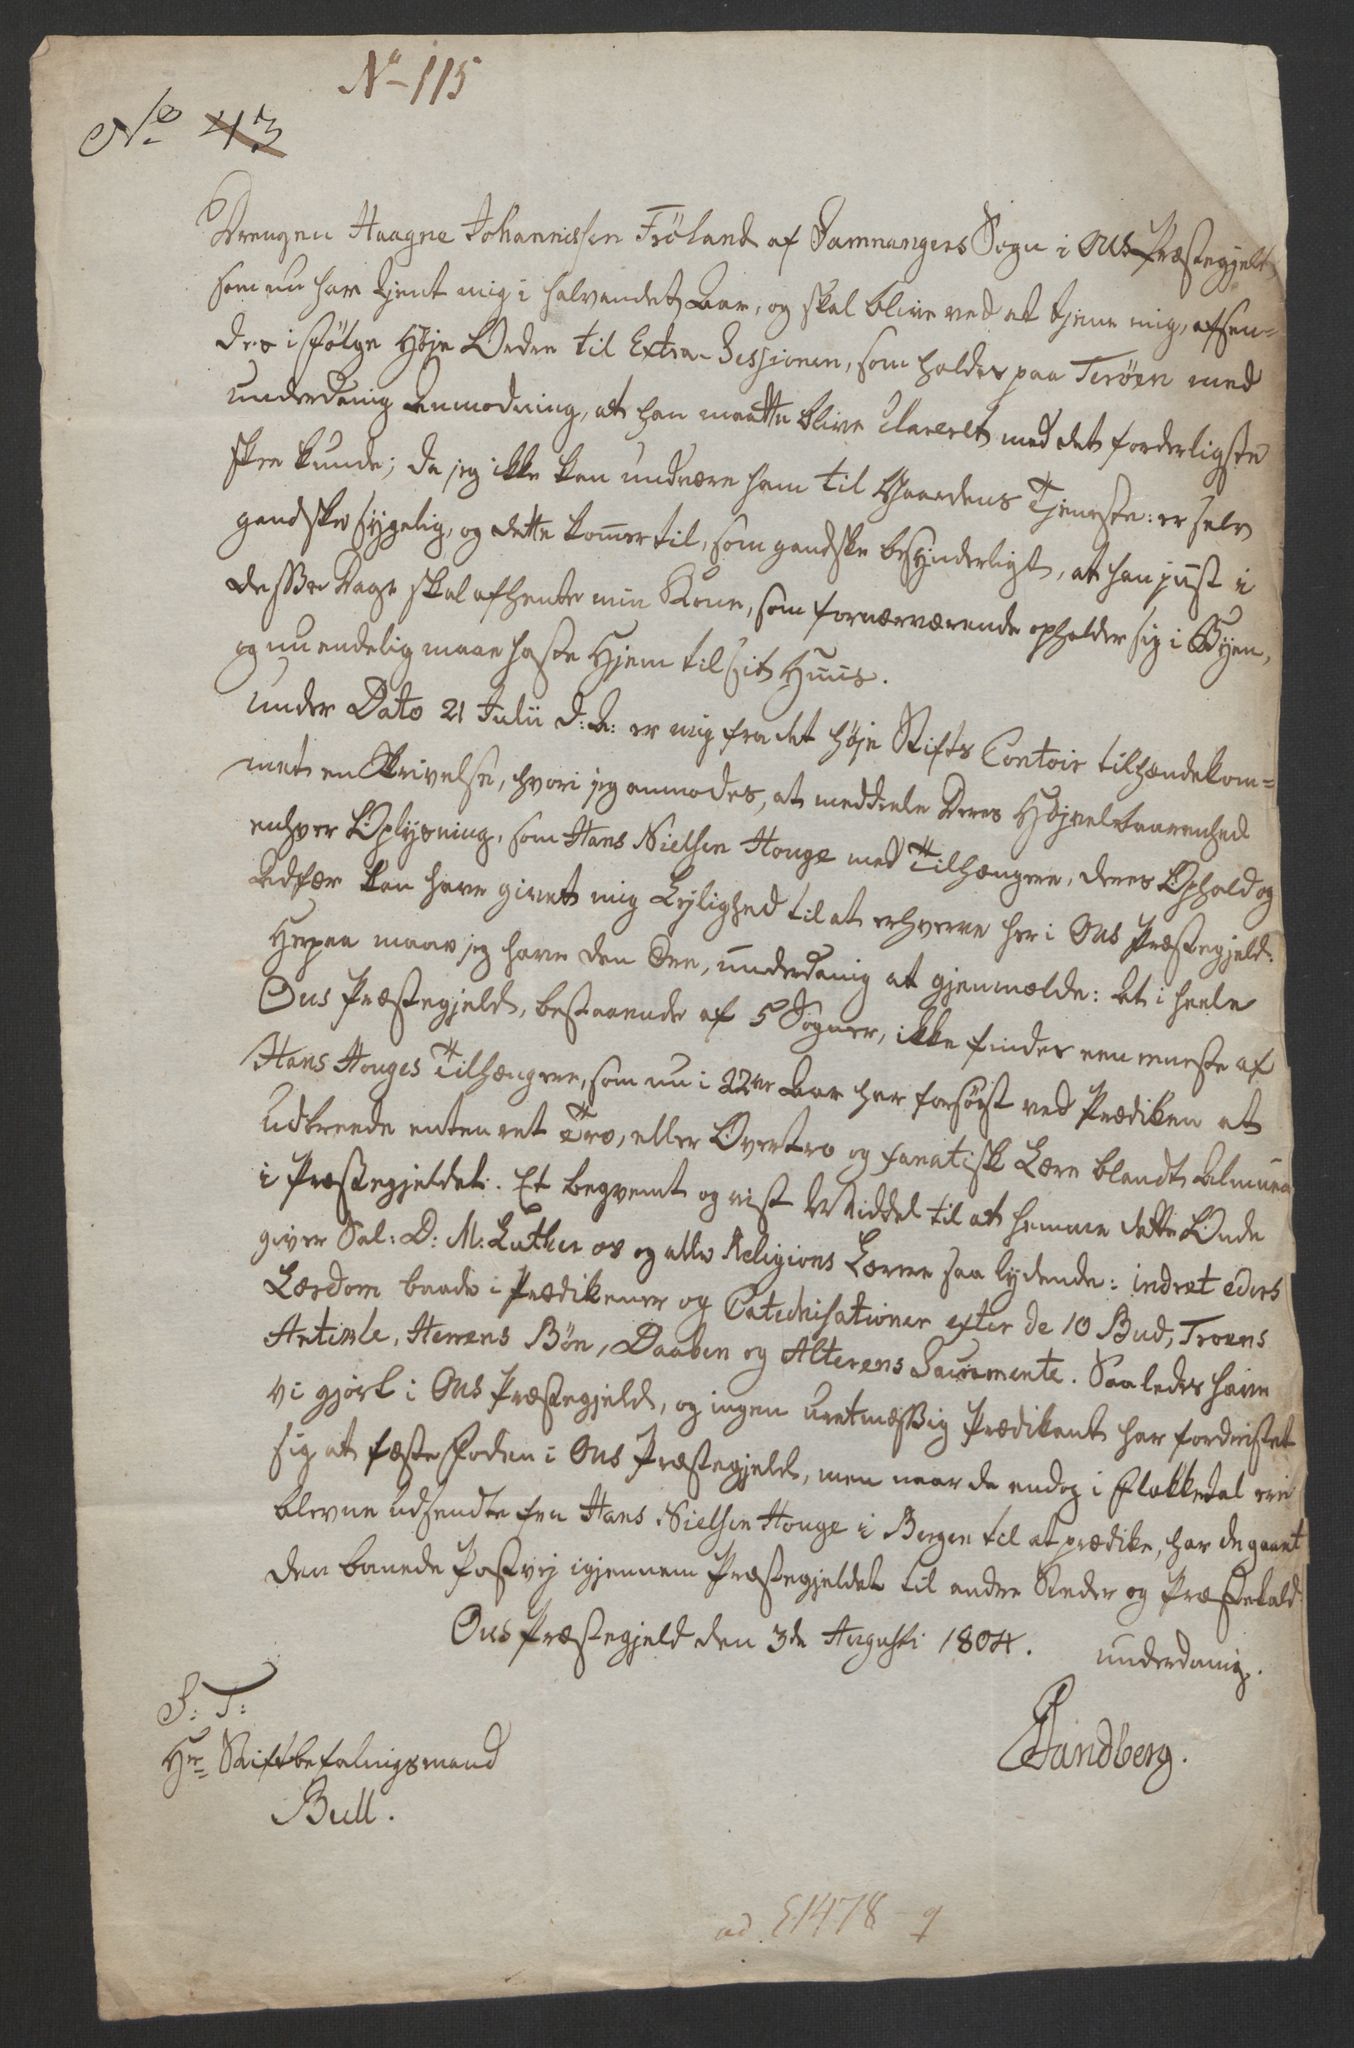 No 115
No 43
Drengen Haagne Johannissen Fröland af Samnangers Sogn i Ous Præstegjeld
som nu har tjent mig i halvandet Aar, og skal blive ved at tjene mig, afsen-
des i følge Høje Ordre til Extra-Sessionen, som holdes paa Terøen med
underdanig Anmodning, at han maatte blive Clareret med det forderligste
skee kunde; da jeg ikke kan undvære ham til Gaardens Tjeneste: er selv
gandske sygelig, og dette kommer til, som gandske besynderligt, at han just i
desse Dage skal afhente min Kone, som fornærværende opholder sig i Byen,
og nu endelig maae haste Hjem til sit Huus.
Under Dato 21 Julii d: A: er mig fra det høje Stifts Contoir tilhændekom-
met en Skrivelse, hvori jeg anmodes, at meddeele Deres Højvelbaarenhed
enhver Oplysning, som Hans Nielsen Houge med Tilhængere, deres Ophold og
Adfær kan have givet mig Lejlighed til at erhverve her i Ous Præstegjeld.
Herpaa maae jeg have den Ære, underdanig at gjenmælde: At i heele
Ous Præstegjeld, bestaaende af 5 Sogner, ikke findes een eneste af
Hans Houges Tilhængere, som nu i 22de Aar har forsøgt ved Prædiken at
udbreede enten ret Tro, eller Overtro og fanatisk Lære blandt Almuen
i Præstegjeldet. Et beqvemt og vist Middel til at hemme dette Onde
giver Sal: D: M: Luther os og alle Religions Lærere saa lydende: indret eders
Lærdom baade i Prædikener og Catechisationer efter de 10 Bud, Troens
Artikle, Herrens Bøn, Daaben og Alterens Sacramente. Saaledes have
vi gjort i Ous Præstegjeld, og ingen uretmæssig Prædikant har fordristet
sig at fæste Foden i Ous Præstegjeld, men naar de endog i Flokketal ere
blevne udsendte fra Hans Nielsen Houge i Bergen til at prædike, har de gaaet
den banede Postvej igjennem Præstegjeldet til andre Steder og Præstekald.
Ous Præstegjeld den 3de Augusti 1804. underdanig.
Sandberg.
S: T:
Hr Stiftbefalingsmand
Bull.
ad. E1478 - 9